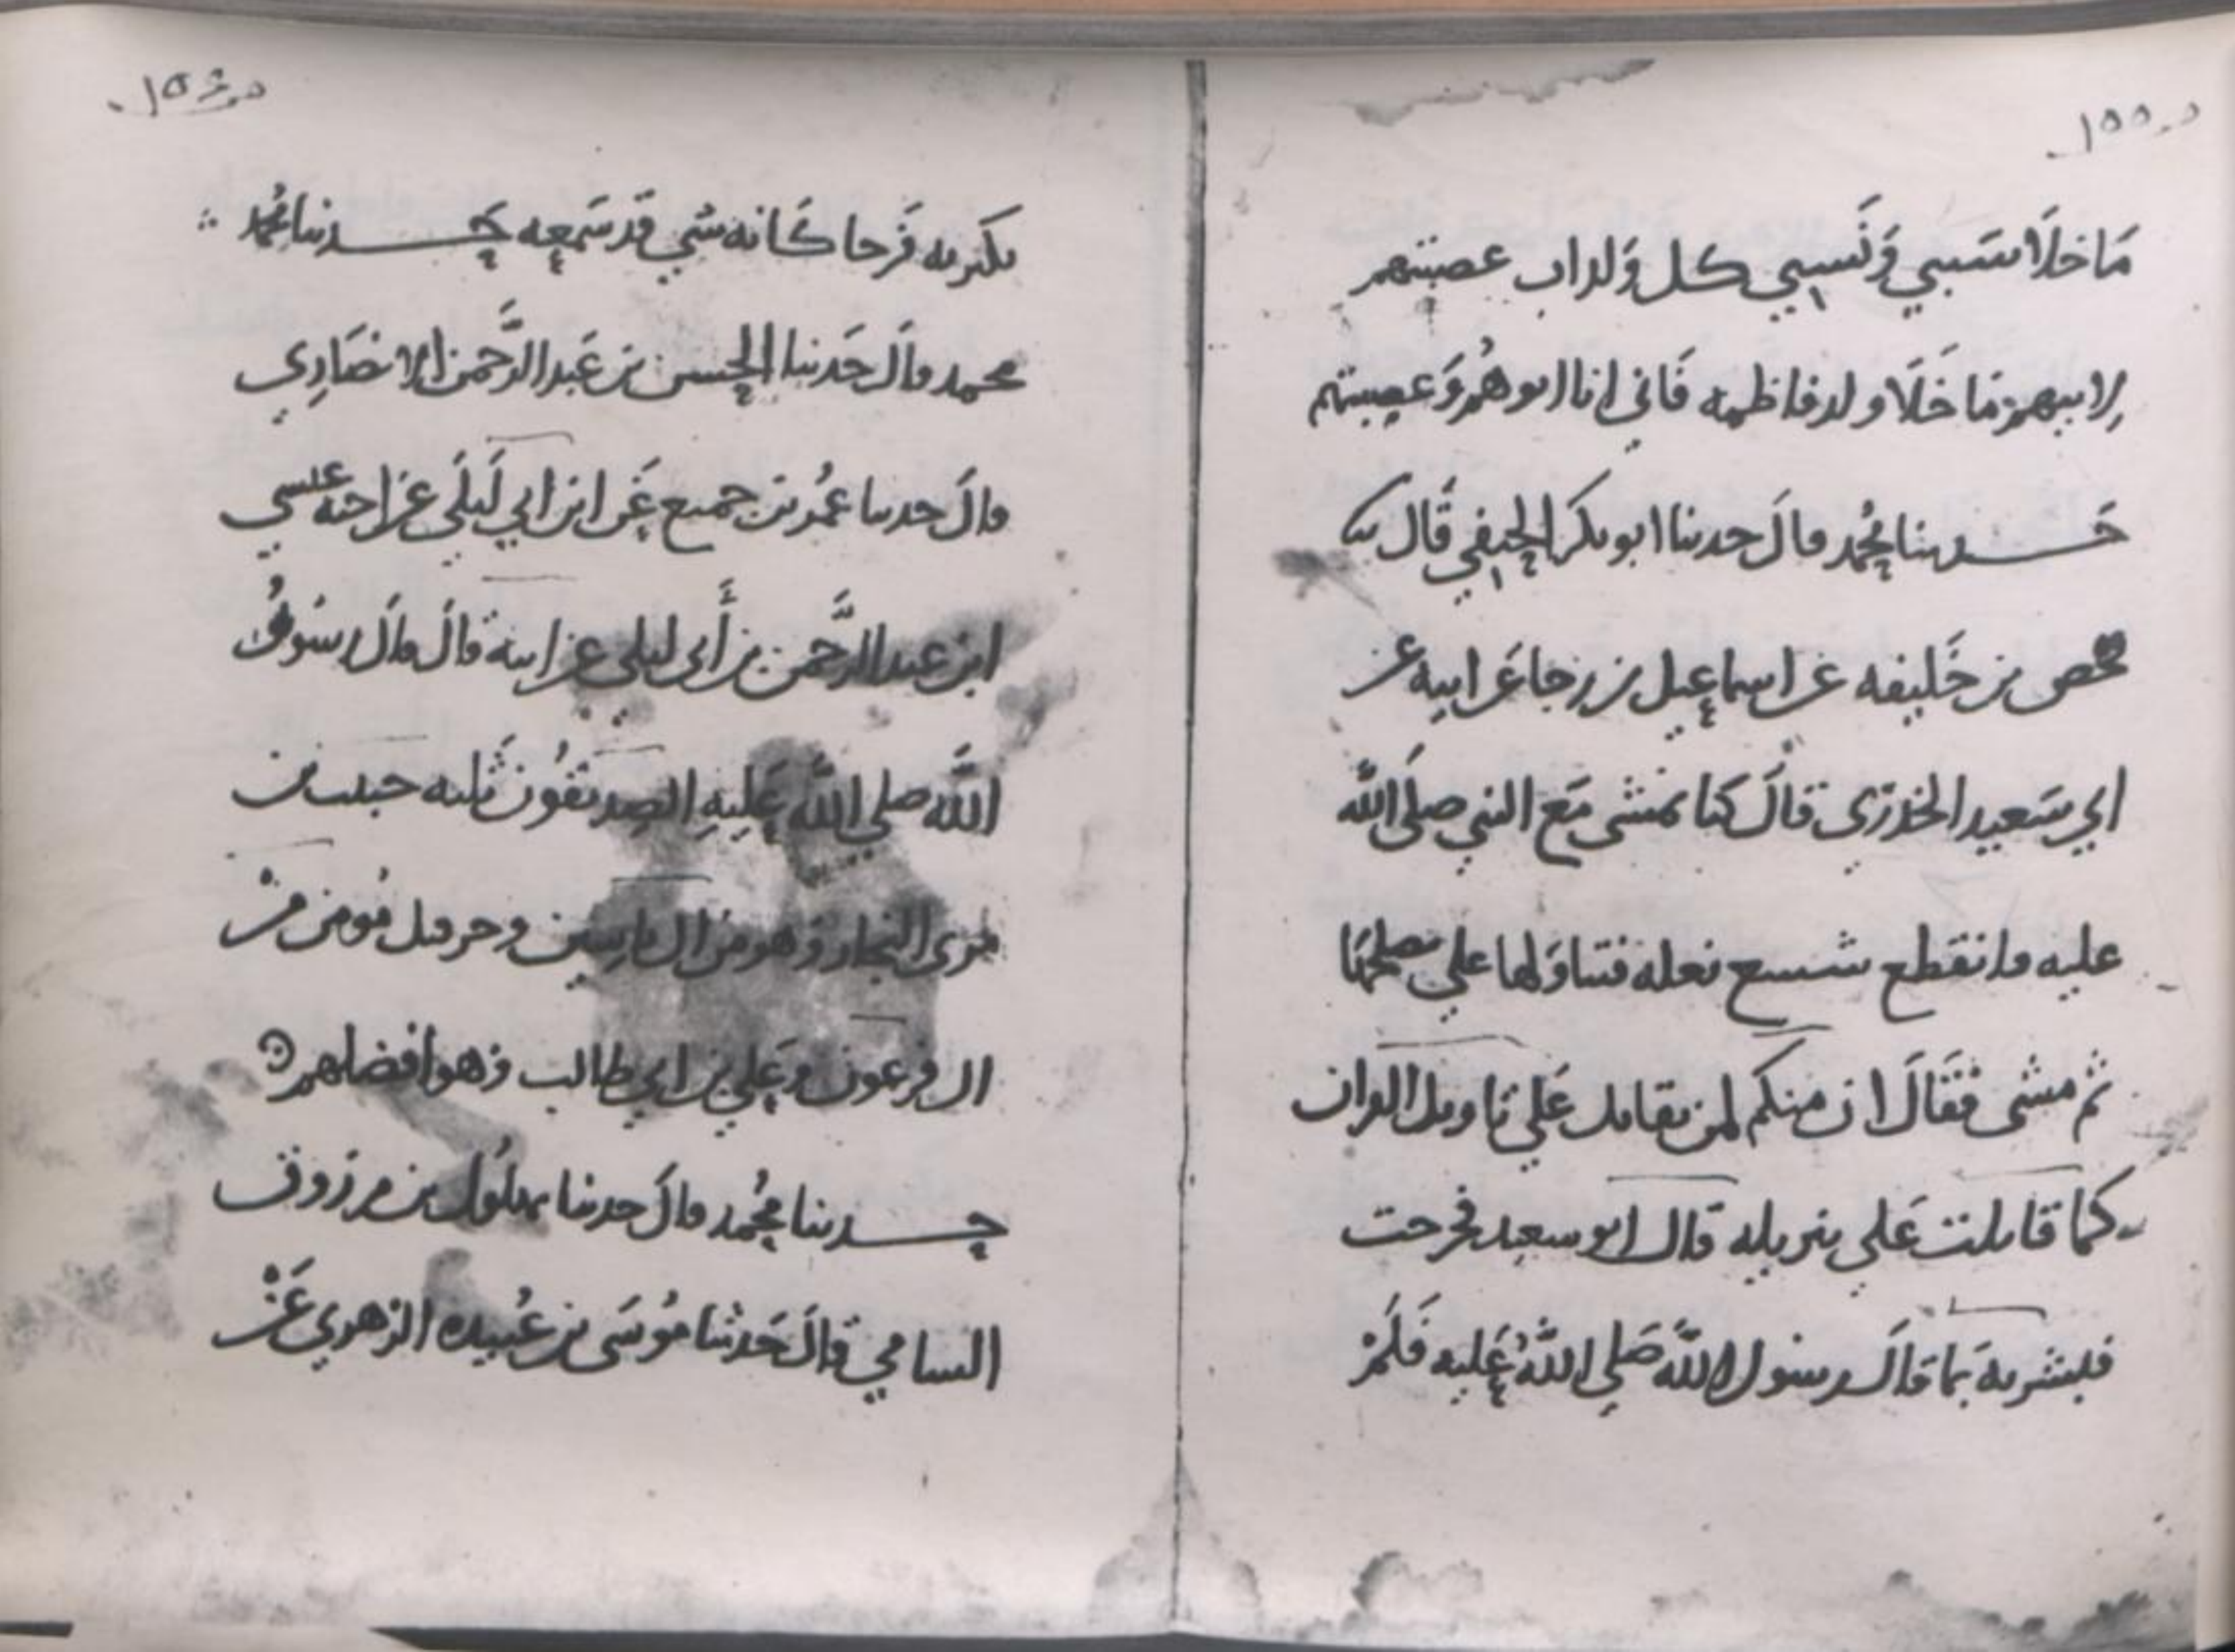 ص ١٥٥
مَا خلَا سَببي وَنَسبي كل وَلد اب عصبتهم
لابيهم مَا خَلَا ولد فاطمه فَاني انا ابوهُم وَعصبتهم
حَدثنا مُحمد قالَ حدثنا ابو بكر الحنفي قَال ثنا
محصن بن خَليفه عَن اسماعيل بن رجا عَن ابيه عَن
ابي سَعيد الخدرَي قالَ كنا نمشي مَع النبي صلَى الله
عليه فانقطع شسع نعله فتناوَلها علي يصلحهَا
ثم مشى فَقَالَ ان منكم لمن يقاتل عَلي تاويل القران
كما قاتلت عَلي تنزيله قال ابو سعيد فخرجت
فبشرته بما قالَ رسول اللَّه صَلي اللَّهُ عَليه فَلَمْ
ص ١٥٦
يكبر به فَرحا كَانه شي قَد سَمعه حَدثنا مُحمد
محمد قالَ حَدثنا الحسن بن عَبد الرَّحمن الانصَاري
قالَ حدثنا عمُر بن جميع عَن ابن ابي لَيلَي عَن اخيه عيسي
ابن عبد الرَّحمن بن أَبي ليلي عن ابيه قالَ قالَ رسَولُ
اللَّه صلي اللَّه عَليهِ الصديقُون ثَلثه حبيب بن
مري النجار وَهو من ال ياسين وحرقيل مُومن منْ
ال فرعون وعَلي بن ابي طالب وَهو افضلهم
حدثنا مُحُمد قالَ حدثنا بهلُول بن مرزوق
السامي قالَ حَدثنا مُوسَى بن عُبيده الزهري عَنْ